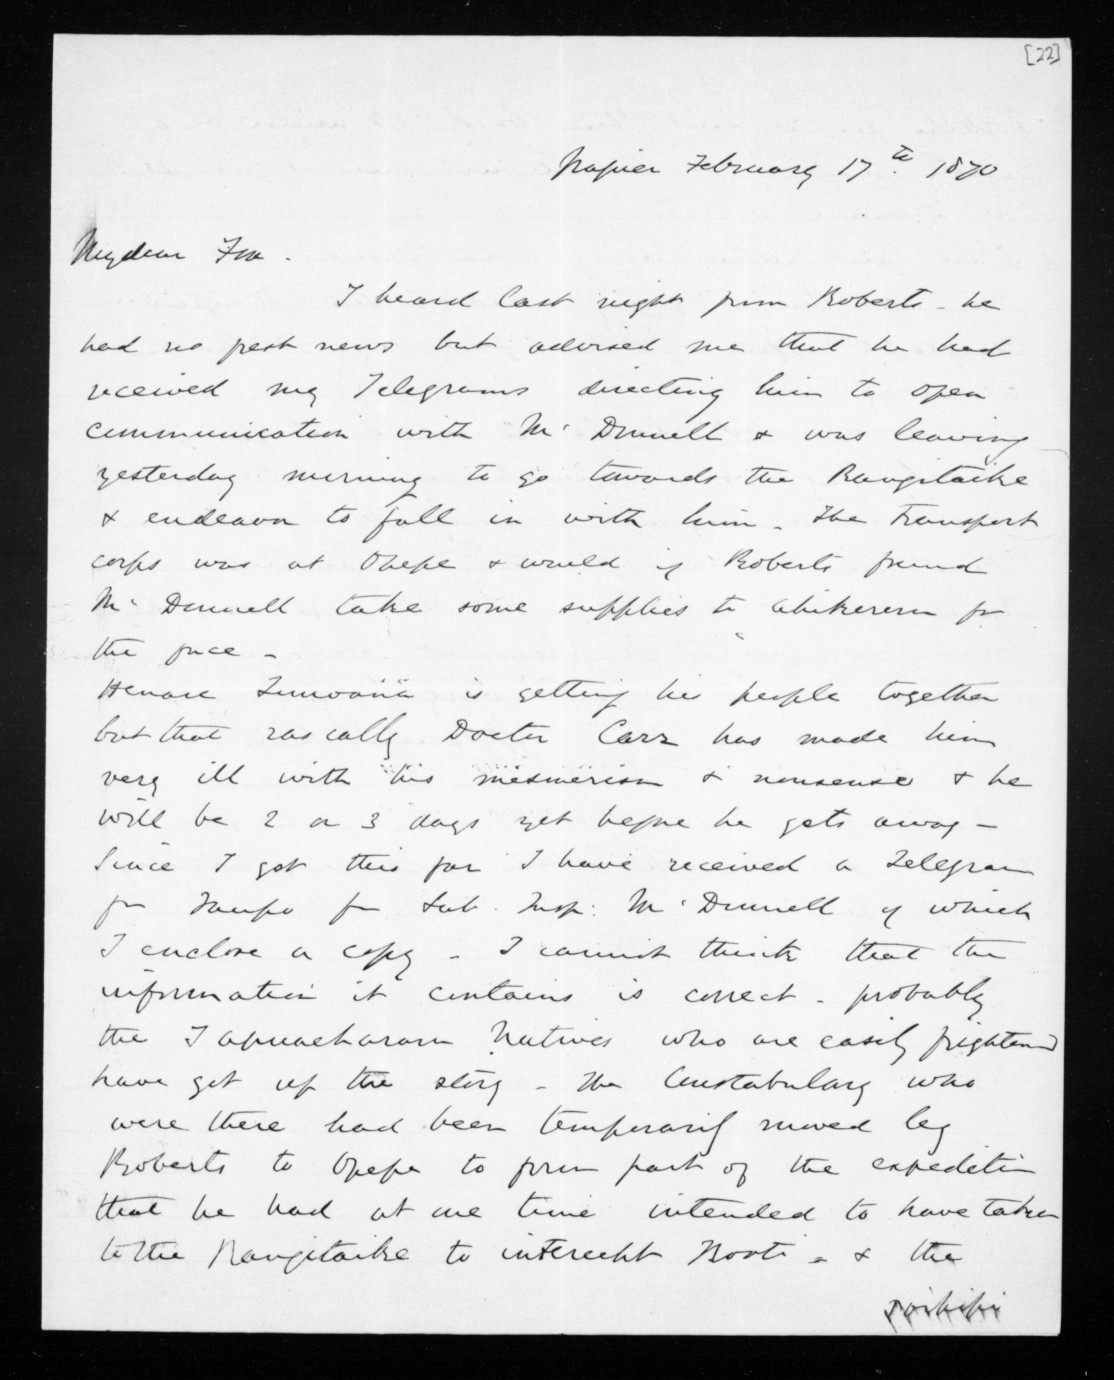 [22]
Napier February 17th 1870
My dear Fox.
I heard last night from Roberts - he
had no fresh news but advised me that he had
received my Telegrams directing him to open
communication with McDonnell & was leaving
yesterday morning to go towards the Rangitaike
& endeavor to fall in with him - The Transport
corps was at Opepe & would if Roberts found
McDonnell take some supplies to Ahikereru for
the force -
Henare Tomoana is getting his people together
but that rascally Doctor Carr has made him
very ill with his mesmerism & nonsense & he
will be 2 or 3 days yet before he gets away -
Since I got this far I have received a Telegram
fm Taupo fm Sub. Insp: McDonnell of which
I enclose a copy - I cannot think that the
information it contains is correct - probably
the Tapuaeharuru Natives who are easily frightened
have got up the story - The Constabulary who
were there had been temporarily moved by
Roberts to Opepe to form part of the expedition
that he had at one time intended to have taken
to the Rangitaike to intercept Kooti - & the